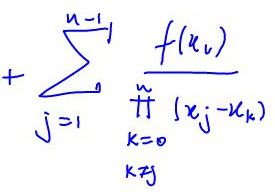 + \sum_{j=1}^{n-1} \frac{f(x_i)}{\prod_{\substack{k=0 \\ k \neq j}}^{n} (x_j - x_k)}